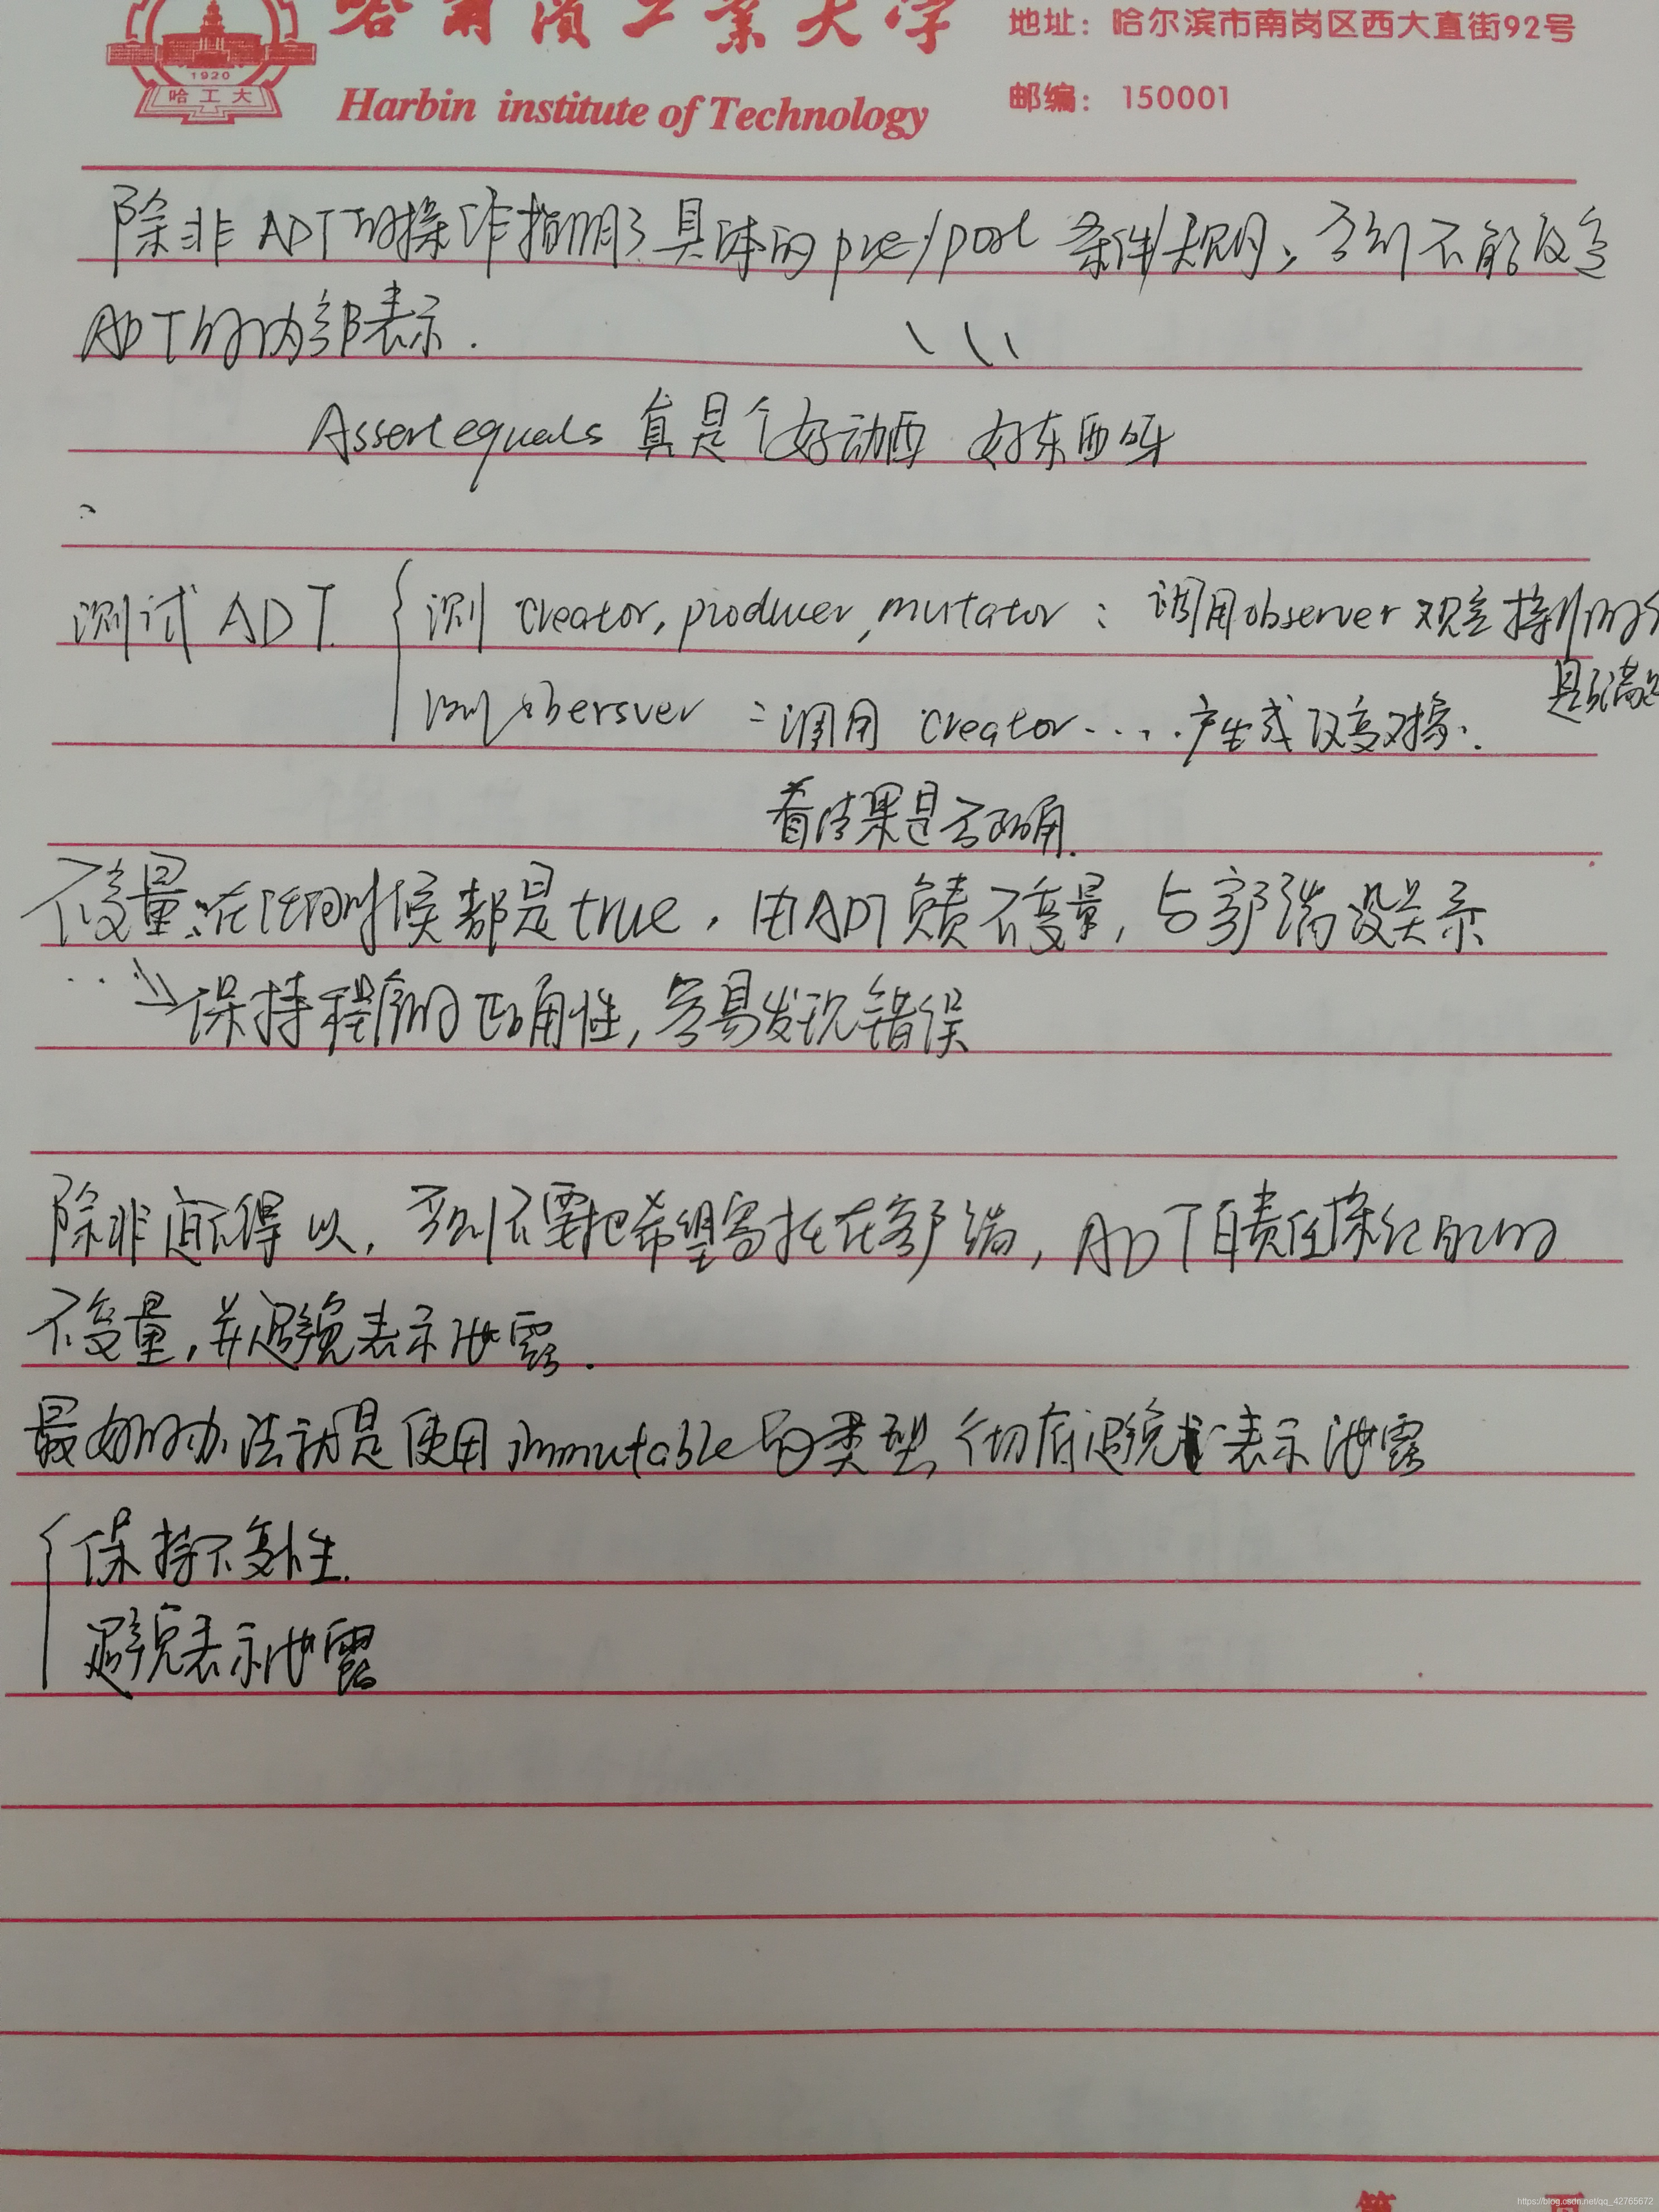 哈尔滨工业大学
地址：哈尔滨市南岗区西大直街92号
1920
哈工大
Harbin institute of Technology
邮编：150001
除非ADT的操作指明了具体的pre/post条件规则，否则不能改变
ADT的内部表示.
Assert equals 真是个好动西 好东西呀
测试ADT. 测 creator, producer, mutator： 调用observer 观察操作的
是否满足
测 obersver ：调用 creator.... 产生或改变对象.
看结果是否正确.
不变量：在任何时候都是true，由ADT负责不变量，与客户端没关系
保持程序的正确性，容易发现错误
除非迫不得以，否则不要把希望寄托在客户端，ADT有责任保证自己的
不变量，并避免表示泄露.
最好的办法就是使用immutable的类型，彻底避免 表示泄露
保持不变性.
避免表示泄露
第 页
https://blog.csdn.net/qq_42765672